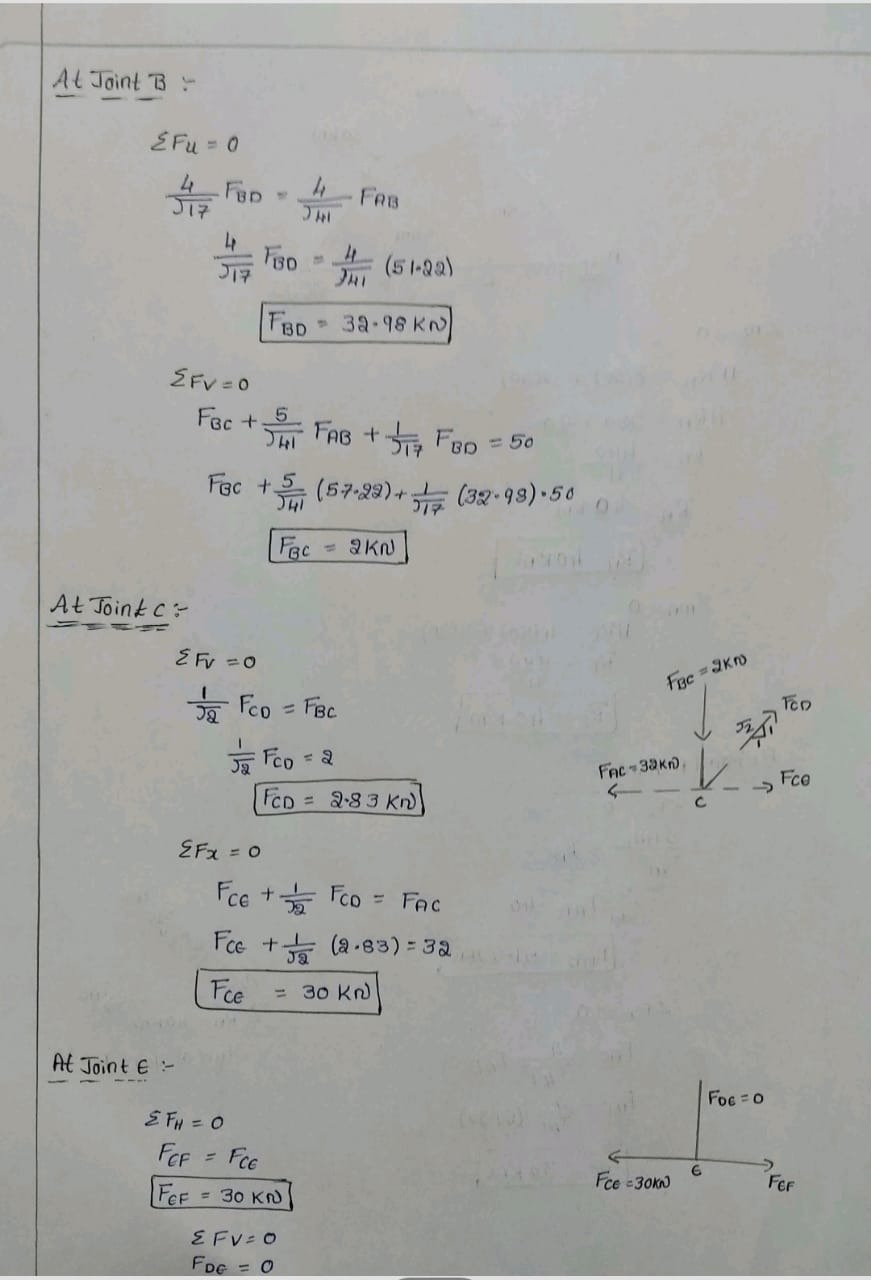 At Joint B :-
ΣFH = 0
4/√17 FBD = 4/√41 FAB
4/√17 FBD = 4/√41 (51.22)
FBD = 32.98 KN
ΣFV = 0
FBC + 5/√41 FAB + 1/√17 FBD = 50
FBC + 5/√41 (57.22) + 1/√17 (32.98) = 50
FBC = 2KN
At Joint C :-
ΣFV = 0
1/√2 FCD = FBC
1/√2 FCD = 2
FCD = 2.83 KN
FBC = 2KN
FCD
√2 1 1
FAC = 32KN
FCE
C
ΣFx = 0
FCE + 1/√2 FCD = FAC
FCE + 1/√2 (2.83) = 32
FCE = 30 KN
At Joint E :-
ΣFH = 0
FEF = FCE
FEF = 30 KN
ΣFV = 0
FDE = 0
FDE = 0
FCE = 30KN
E
FEF